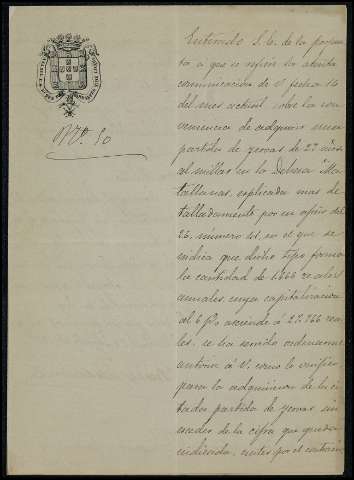 Nº. 50
Enterado S. E. de la propues
ta, a que se refiere la atenta
comunicacion de V. fecha 14
del mes actual, sobre la con
veniencia de adquirir una
partida de yerbas de 27 años
al millar en la Dehesa "Ma
tallana, explicada mas de
talladamente por su oficio del
26, número 41, en el que se
indica que dicho tipo forma
la cantidad de 1666 reales
anuales, cuya capitalizacion
al 6 p% asciende á 27.766 rea
les, se ha servido ordenarme
autorice á V. como lo verifico
para la adquisicion de la ci
tada partida de yerbas sin
esceder de la cifra que queda
indicada, antes por el contrario